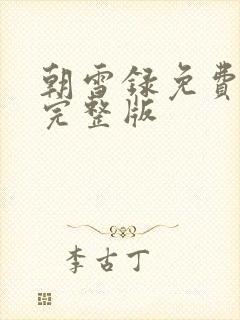 朝雪録免費
完整版
李古丁